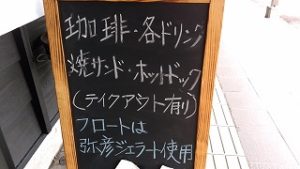 珈琲・各ドリンク
焼サンド・ホットドック
(テイクアウト有り)
フロートは
弥彦ジェラート使用